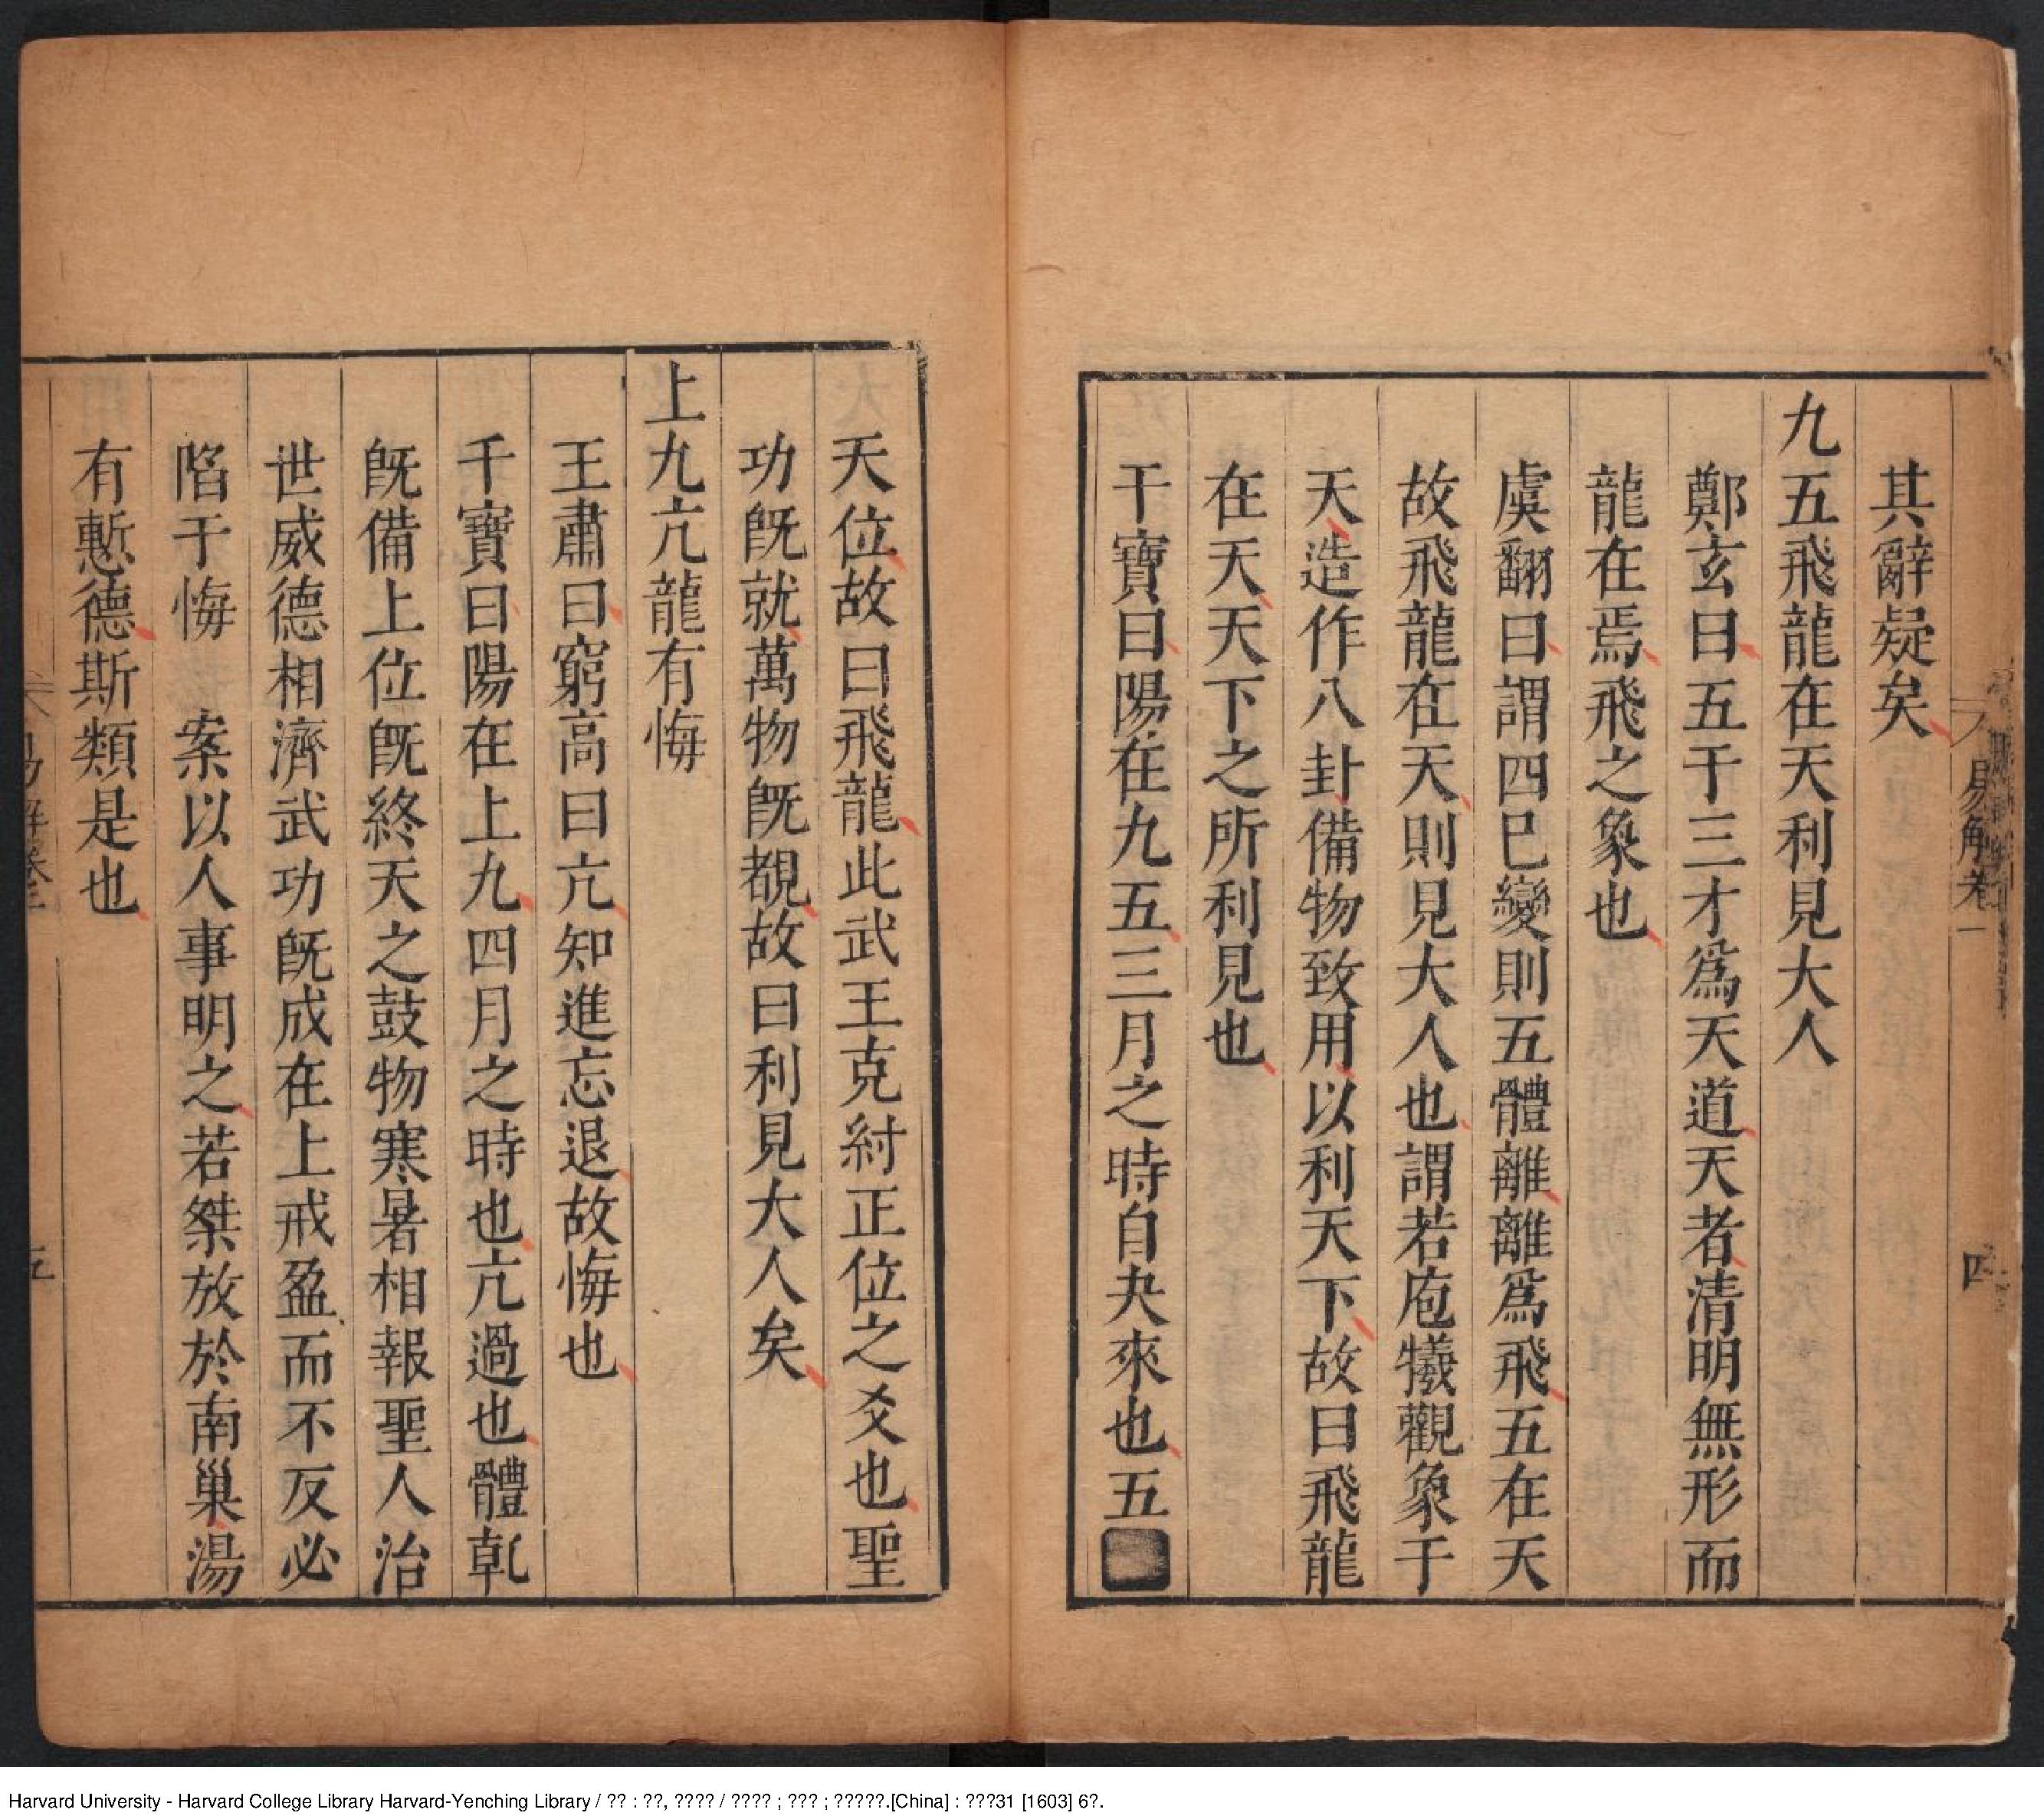 其辭疑矣
九五飛龍在天利見大人
鄭玄曰五于三才爲天道天者清明無形而
龍在焉飛之象也
虞翻曰謂四已變則五體離離爲飛五在天
故飛龍在天則見大人也謂若庖犧觀象于
天造作八卦備物致用以利天下故曰飛龍
在天天下之所利見也
干寶曰陽在九五三月之時自夬來也五
易解卷一
四
天位故曰飛龍此武王克紂正位之爻也聖
功旣就萬物旣覩故曰利見大人矣
上九亢龍有悔
王肅曰窮高曰亢知進忘退故悔也
干寶曰陽在上九四月之時也亢過也體乹
旣備上位旣終天之鼓物寒暑相報聖人治
世威德相濟武功旣成在上戒盈而不反必
陷于悔　案以人事明之若桀放於南巢湯
有慙德斯類是也
五
Harvard University - Harvard College Library Harvard-Yenching Library / ?? : ??, ???? / ???? ; ??? ; ?????.[China] : ???31 [1603] 6?.